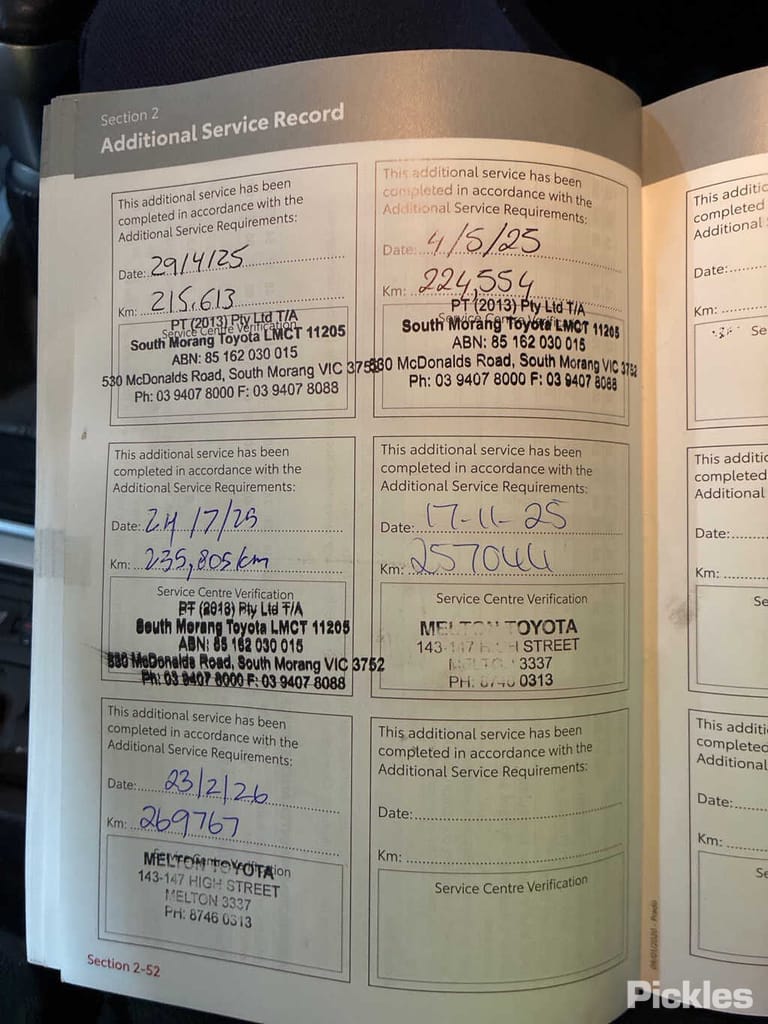 Section 2
Additional Service Record
This additional service has been
completed in accordance with the
Additional Service Requirements:
Date: 29/4/25
Km: 215,613
Service Centre Verification
PT (2013) Pty Ltd T/A
South Morang Toyota LMCT 11205
ABN: 85 162 030 015
530 McDonalds Road, South Morang VIC 3752
Ph: 03 9407 8000 F: 03 9407 8088
This additional service has been
completed in accordance with the
Additional Service Requirements:
Date: 4/5/25
Km: 224,554
PT (2013) Pty Ltd T/A
South Morang Toyota LMCT 11205
ABN: 85 162 030 015
530 McDonalds Road, South Morang VIC 3752
Ph: 03 9407 8000 F: 03 9407 8088
This additional service has been
completed in accordance with the
Additional Service Requirements:
Date: 24/7/25
Km: 235,805km
Service Centre Verification
PT (2013) Pty Ltd T/A
South Morang Toyota LMCT 11205
ABN: 85 162 030 015
530 McDonalds Road, South Morang VIC 3752
Ph: 03 9407 8000 F: 03 9407 8088
This additional service has been
completed in accordance with the
Additional Service Requirements:
Date: 17-11-25
Km: 257044
Service Centre Verification
MELTON TOYOTA
143-147 HIGH STREET
MELTON 3337
PH: 8746 0313
This additional service has been
completed in accordance with the
Additional Service Requirements:
Date: 23/2/26
Km: 269767
Service Centre Verification
MELTON TOYOTA
143-147 HIGH STREET
MELTON 3337
PH: 8746 0313
This additional service has been
completed in accordance with the
Additional Service Requirements:
Date:
Km:
Service Centre Verification
Section 2-52
This additio
completed
Additional
Date:
Km:
Se
This additio
completed
Additional
Date:
Km:
Se
This additi
complete
Additiona
Date:
Km:
Se
Pickles